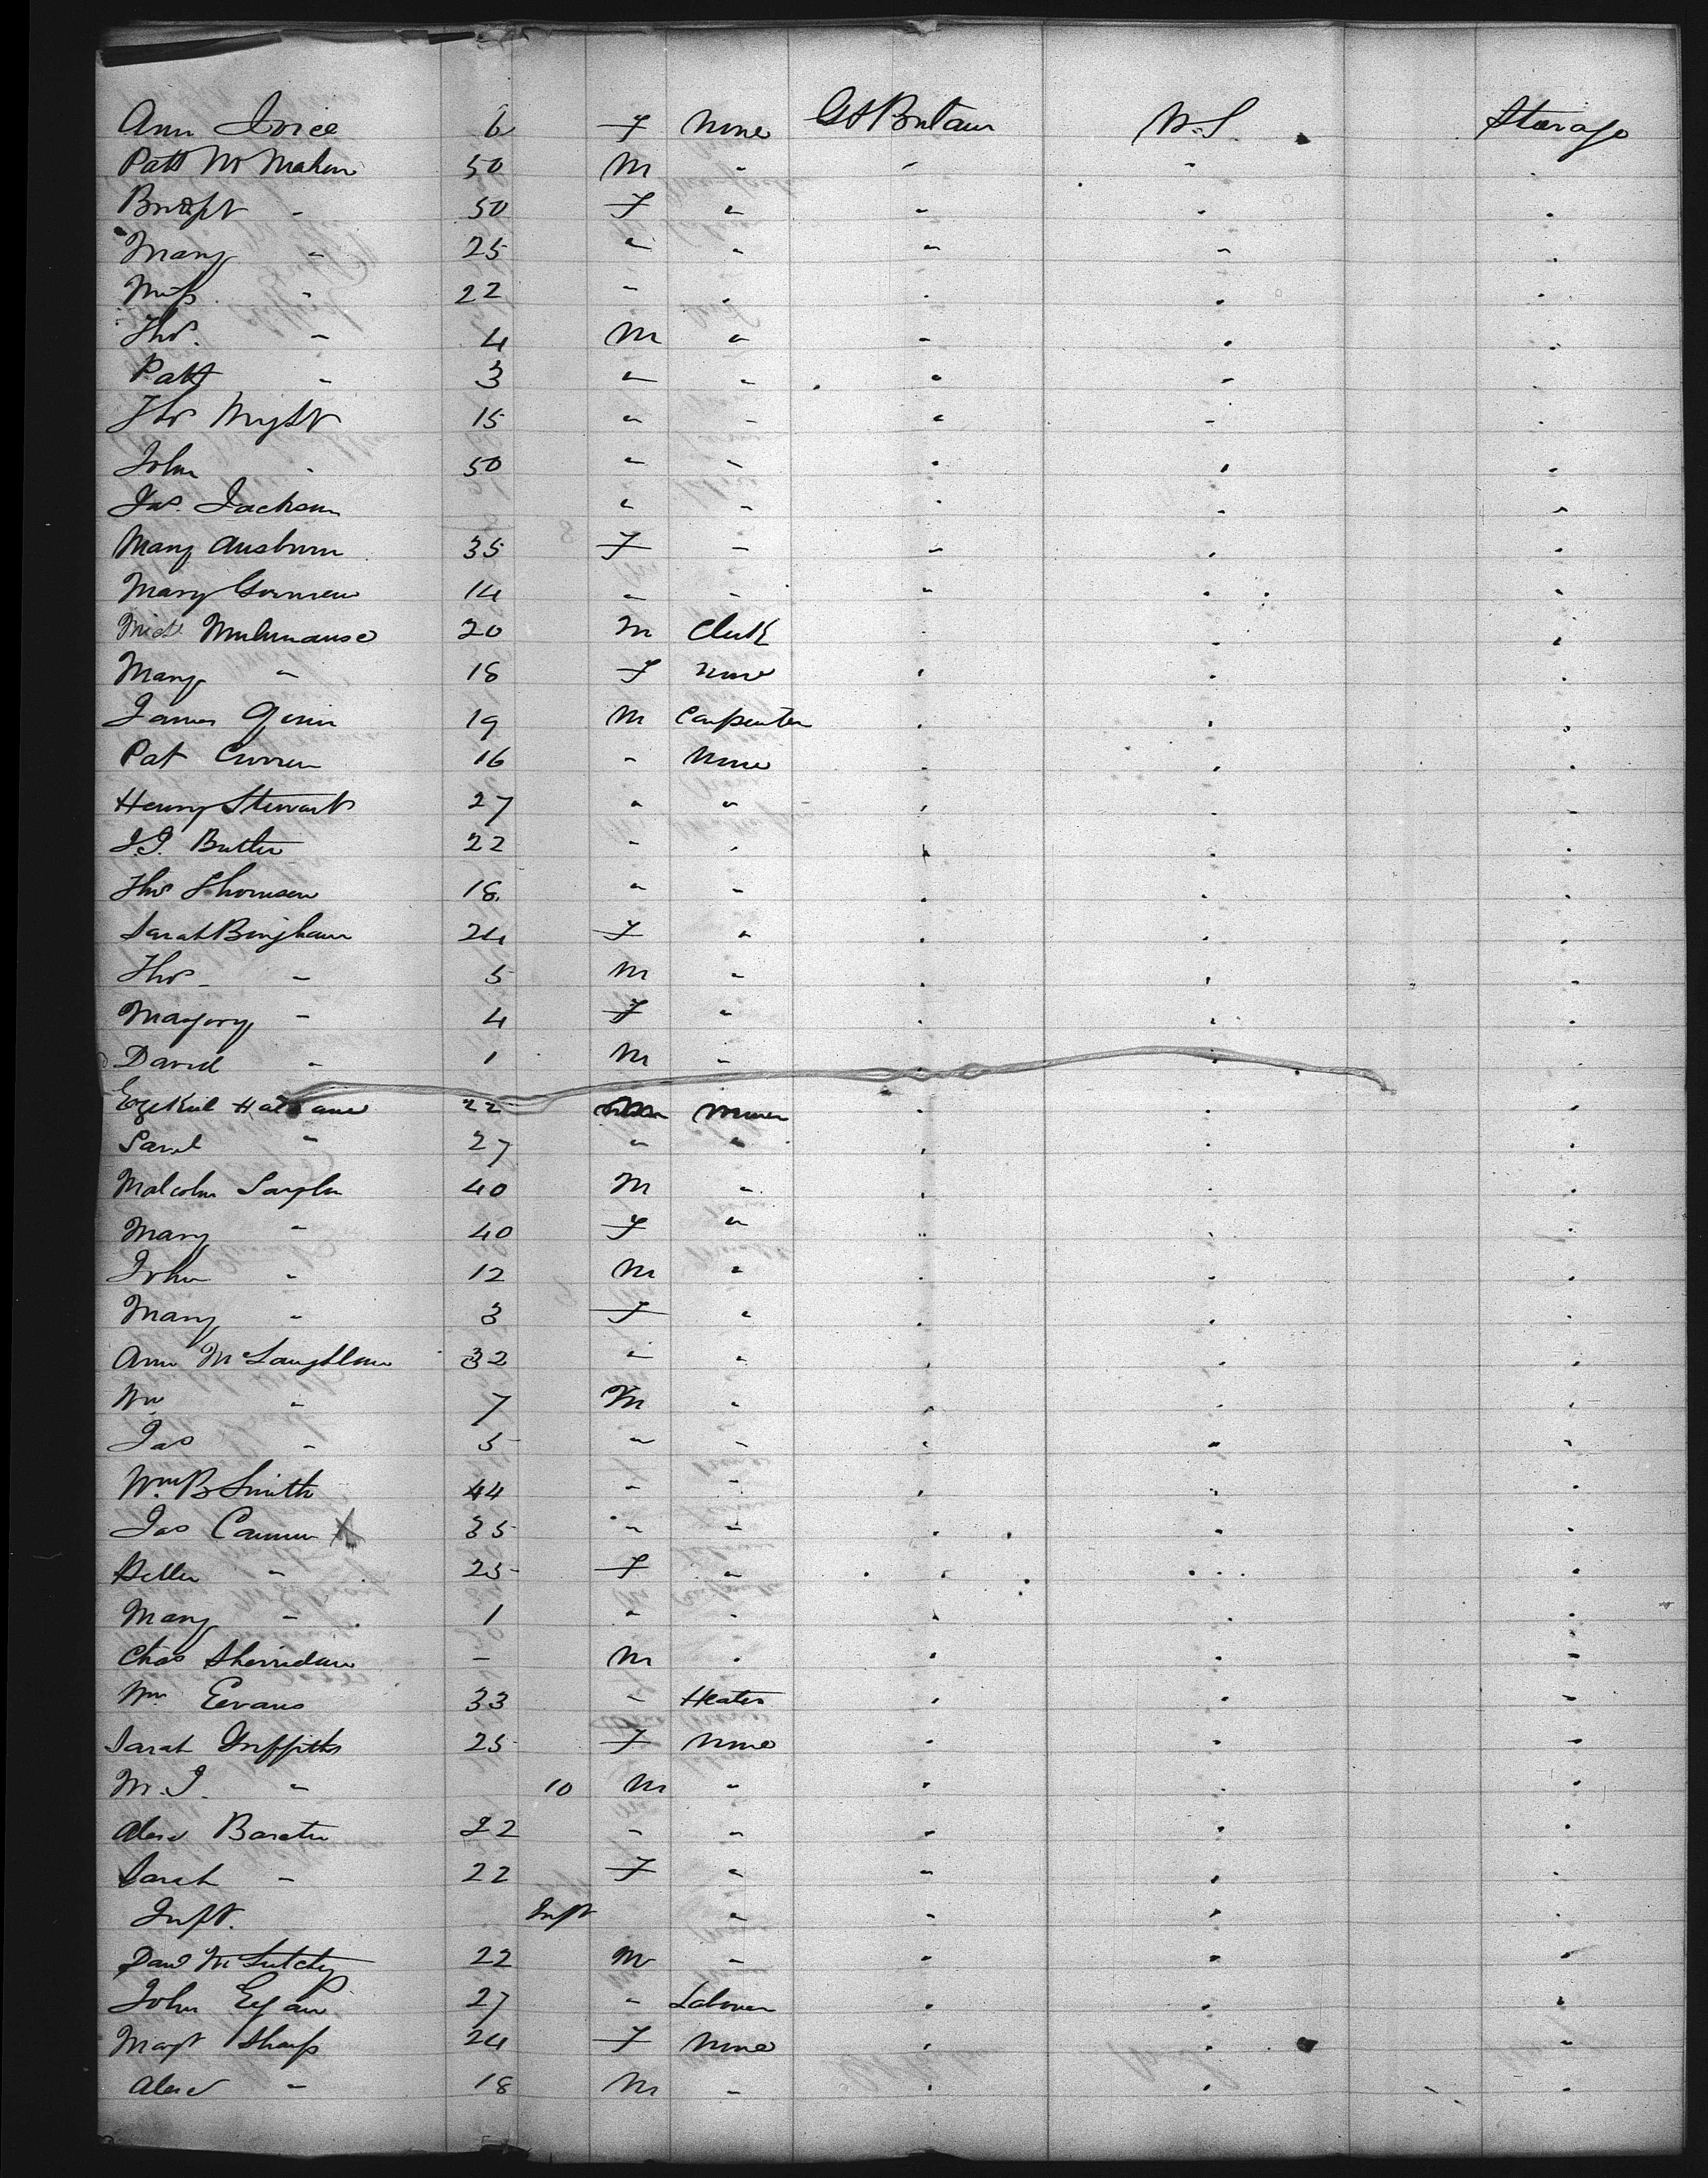 Ann Joice 6 F None Gt Britain U.S. Steerage
Patt McMahon 50 M " " " "
Bridgt " 50 F " " " "
Mary " 25 " " " " "
Miss " 22 " " " " "
Thos. " 4 M " " " "
Patt " 3 " " " " "
Thos Wright 15 " " " " "
John " 50 " " " " "
Jas. Jackson " " " " "
Mary Ausburn 35 F " " " "
Mary 14 " " " " "
20 M Clerk " " "
Mary " 18 F None " " "
James 19 M Carpenter " " "
Pat Curren 16 " None " " "
Henry Stewart 27 " " " " "
J.J. Butler 22 " " " " "
Thos Thomson 18 " " " " "
Sarah Bingham 24 F " " " "
Thos " 5 M " " " "
Marjory " 4 F " " " "
David " 1 M " " " "
Ezekiel 22 Miner " " "
Saml " 27 " " " " "
Malcolm 40 M " " " "
Mary " 40 F " " " "
John " 12 M " " " "
Mary " 3 F " " " "
Ann McLaughlin 32 " " " " "
Wm " 7 M " " " "
Jas " 5 " " " " "
Wm B Smith 44 " " " " "
Jas X 35 " " " " "
" 25 F " " " "
Mary " 1 " " " " "
Chas Sherridan - M " " " "
Wm Eevans 33 " Heater " " "
Sarah Griffiths 25 F None " " "
M.J. " 10 M " " " "
Alexr 22 " " " " "
Sarah " 22 F " " " "
Inft. Inft " " " "
22 M " " " "
John Egan 27 " Laborer " " "
Margt Sharp 24 F None " " "
Alexr " 18 M " " " "